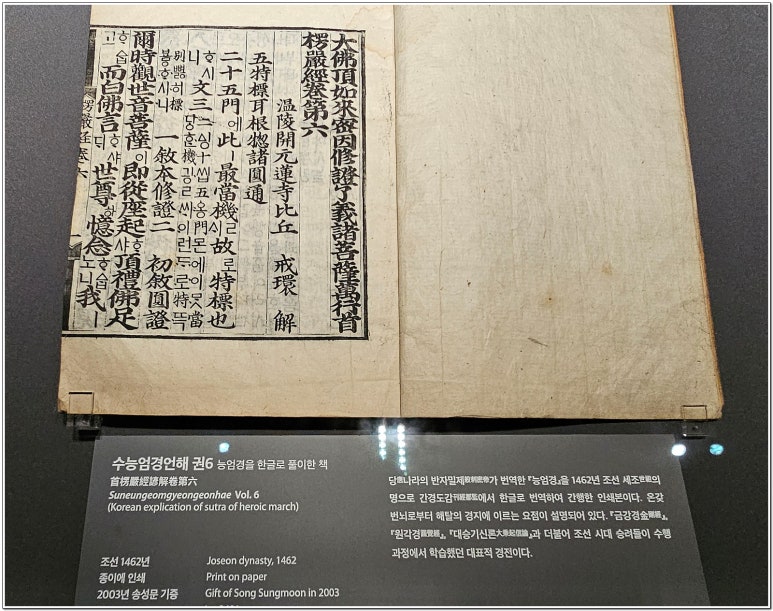 大佛頂如來密因修證了義諸菩薩萬行首
楞嚴經卷第六
温陵開元蓮寺比丘 戒環 解
五特標耳根惣諸圓通
二十五門에此ㅣ最當機ㄹ故로特標也
文三
一敘本修證二 初敘圓證
爾時觀世音菩薩이即從座起ᄒᆞ샤頂禮佛足
ᄒᆞᅀᆞᆸ고而白佛言ᄒᆞ샤ᄃᆡ世尊하憶念ᄒᆞᅀᆞᆸ노니我ㅣ
수능엄경언해 권6 능엄경을 한글로 풀이한 책
首楞嚴經諺解卷第六
Suneungeomgyeongeonhae Vol. 6
(Korean explication of sutra of heroic march)
조선 1462년 Joseon dynasty, 1462
종이에 인쇄 Print on paper
2003년 송성문 기증 Gift of Song Sungmoon in 2003
당唐나라의 반자밀제般刺密帝가 번역한 『능엄경』을 1462년 조선 세조世祖의
명으로 간경도감刊經都監에서 한글로 번역하여 간행한 인쇄본이다. 온갖
번뇌로부터 해탈의 경지에 이르는 요점이 설명되어 있다. 『금강경金剛經』,
『원각경圓覺經』, 『대승기신론大乘起信論』과 더불어 조선 시대 승려들이 수행
과정에서 학습했던 대표적 경전이다.